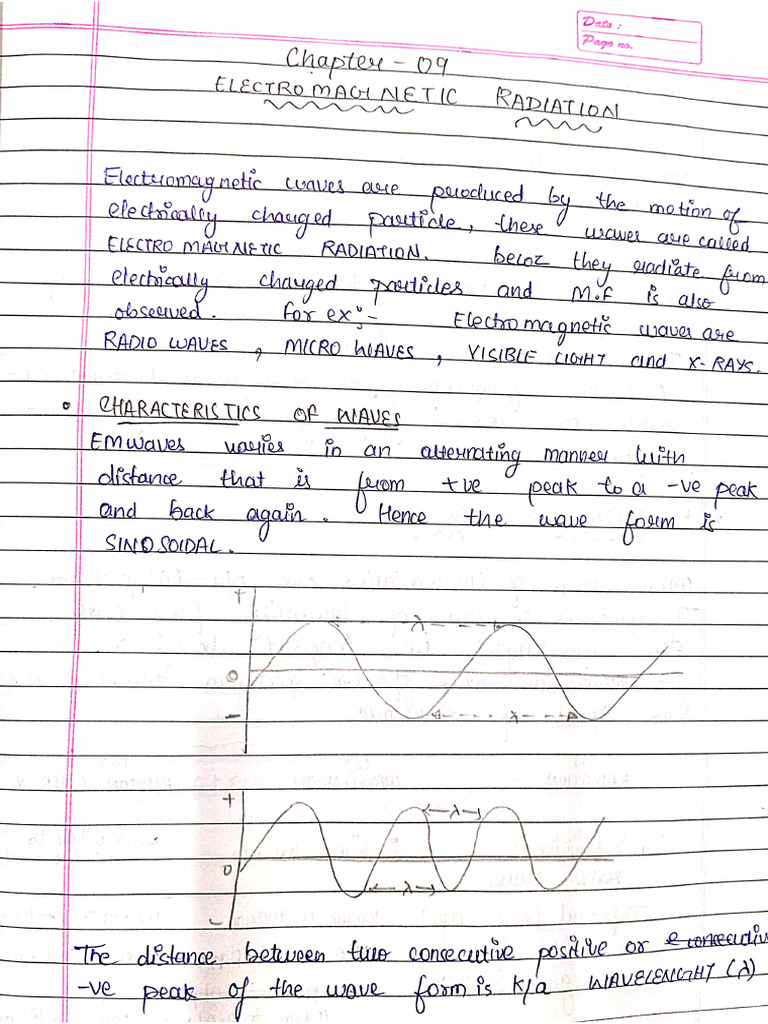 Date :
Page no.
Chapter - 09
ELECTROMAGNETIC RADIATION
Electromagnetic waves are produced by the motion of
electrically charged particle, these waves are called
ELECTROMAGNETIC RADIATION. becoz they radiate from
electrically charged particles and M.F is also
observed. For ex:- Electromagnetic waves are
RADIO WAVES, MICRO WAVES, VISIBLE LIGHT and X-RAYS.
• CHARACTERISTICS OF WAVES
EM waves varies in an alternating manner with
distance that is from +ve peak to a -ve peak
and back again. Hence the wave form is
SINOSOIDAL.
+
λ
0
-
λ
+
λ
0
λ
-
The distance between two consecutive positive or consecutive
-ve peak of the wave form is k/a WAVELENGHT (λ)